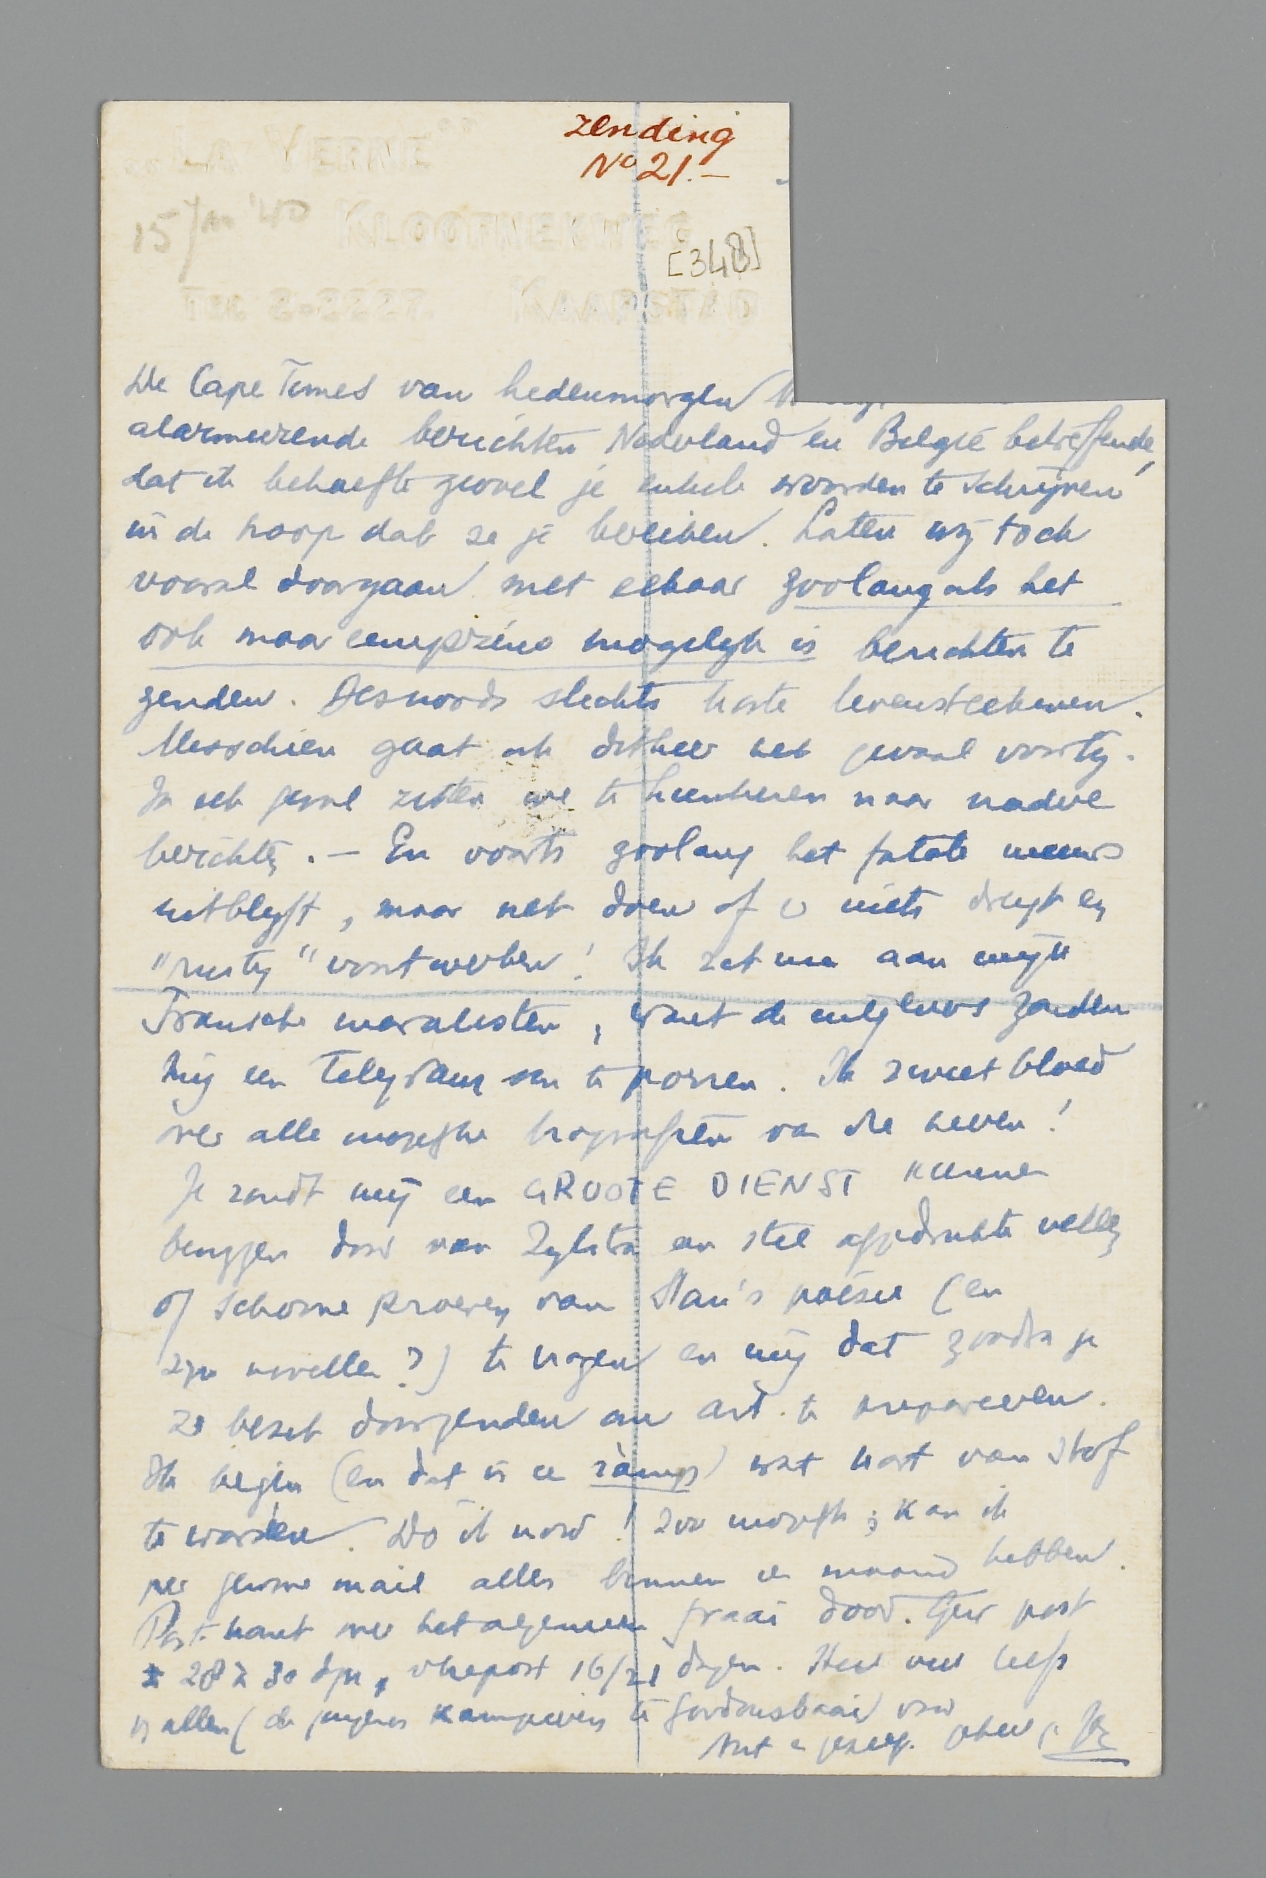 zending
No 21.—
"La Verne"
15 Jan '40 Kloofnekweg
[348]
Tel 2-2227. Kaapstad
De Cape Times van hedenmorgen
alarmeerende berichten Nederland en België betreffende,
dat ik behoefte gevoel je enkele woorden te schrijven
in de hoop dat ze je bereiken. Laten wij toch
vooral doorgaan met elkaar zoolang als het
ook maar eenigszins mogelijk is berichten te
zenden. Desnoods slechts korte levensteekenen.
Misschien gaat ook ditkeer het gevaar voorbij.
In elk geval zitten we te hunkeren naar nadere
berichten. — En voorts zoolang het fatale nieuws
uitblijft, maar net doen of er niets dreigt en
"rustig" voortwerken! Ik zet me aan mijn
Fransche moralisten, want de uitgevers zonden
mij een telegram om te porren. Ik zweet bloed
over alle mogelijke biografieën van die heeren!
Je zoudt mij een GROOTE DIENST kunnen
bewijzen door van Zijlstra een stel afgedrukte vellen
of schoone proeven van Slau's poëzie (en
zijn novellen?) te vragen en mij dat zoodra je
ze bezit doorzenden om art. te prepareeren.
Ik begin (en dat is een ramp) wat kort van stof
te worden. Do it now! Zoo mogelijk; kan ik
per gewone mail alles binnen de maand hebben.
Post komt over het algemeen fraai door. Gew post
± 28 à 30 dgn, vliegpost 16/21 dagen. Heel veel liefs
v allen (de jongens kampeeren te Gordonsbaai) voor
Ant en jezelf. steeds je